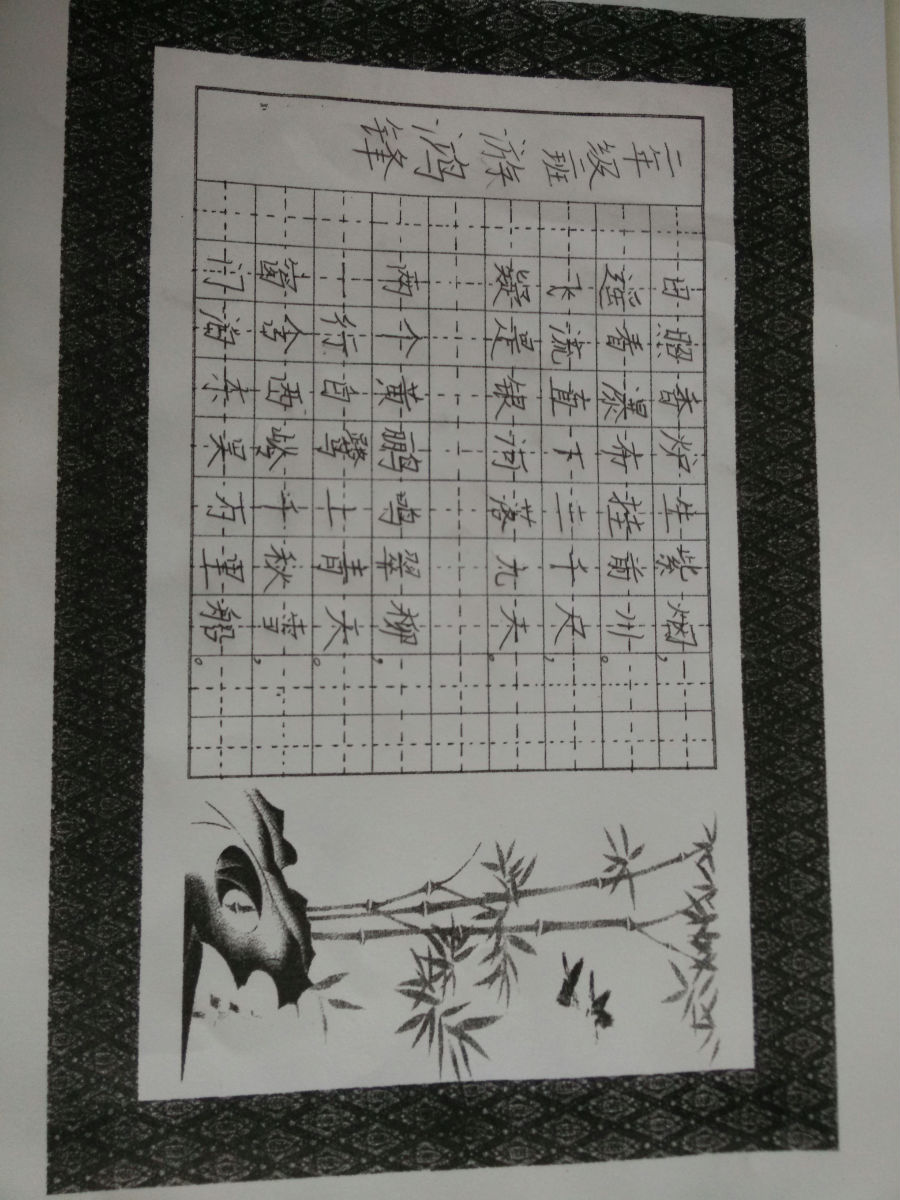 二年级二班 游鸿锋
日照香炉生紫烟,
遥看瀑布挂前川。
飞流直下三千尺,
疑是银河落九天。
两个黄鹂鸣翠柳,
一行白鹭上青天。
窗含西岭千秋雪,
门泊东吴万里船。